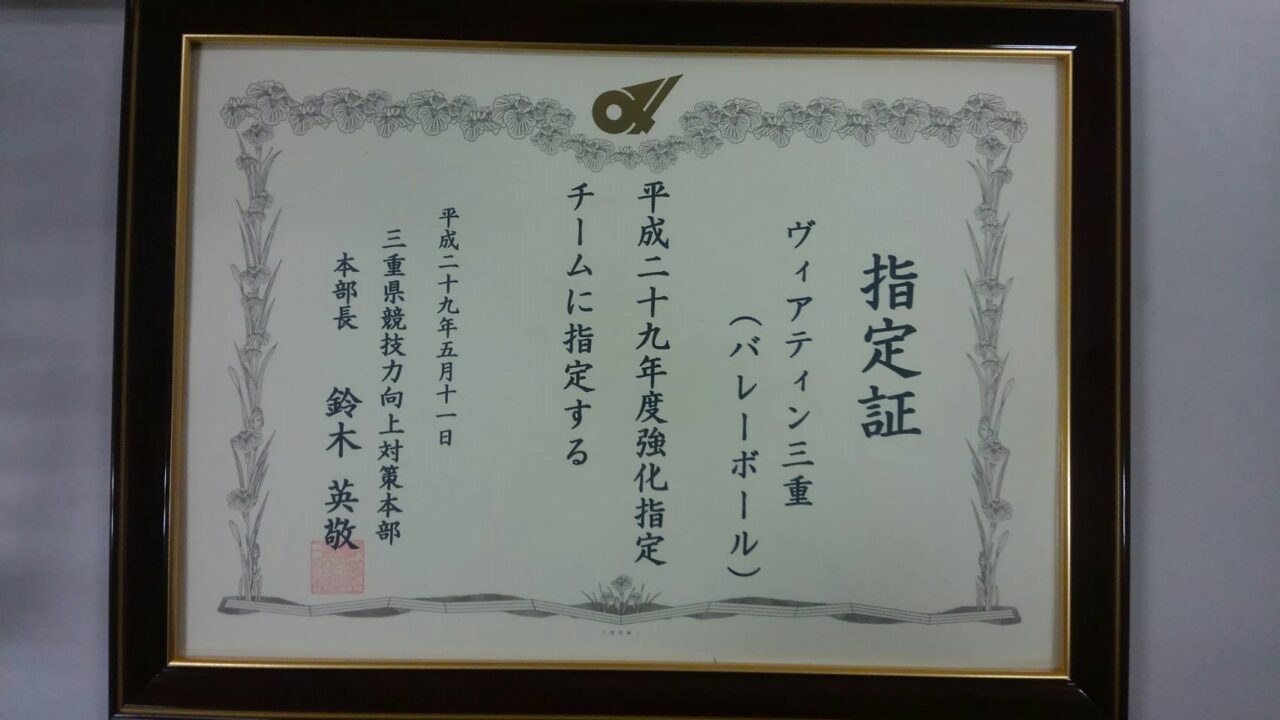 指定証
ヴィアティン三重
（バレーボール）
平成二十九年度強化指定
チームに指定する
平成二十九年五月十一日
三重県競技力向上対策本部
本部長　鈴木　英敬